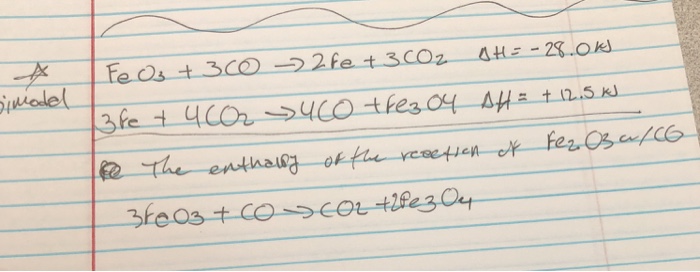 FeO3 + 3CO → 2Fe + 3CO2 ΔH = - 28.0 kJ
3Fe + 4CO2 → 4CO + Fe3O4 ΔH = + 12.5 kJ
The enthalpy of the reaction of Fe2O3 w/CO
3FeO3 + CO → CO2 + 2Fe3O4